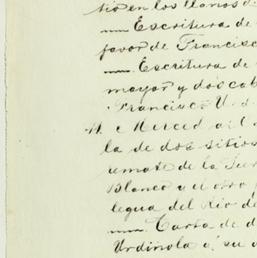 tio en los llanos d
Escritura de
favor de Francisc
Escritura de
mayor y dos cab
Francisco U. d
Merced a
la de dos sitios
remate de la
Blanco y el otro
legua del Rio de
Carta de d
Urdiñola á su